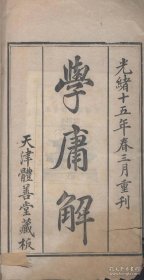 光緒十五年春三月重刊
學庸解
天津體善堂藏板